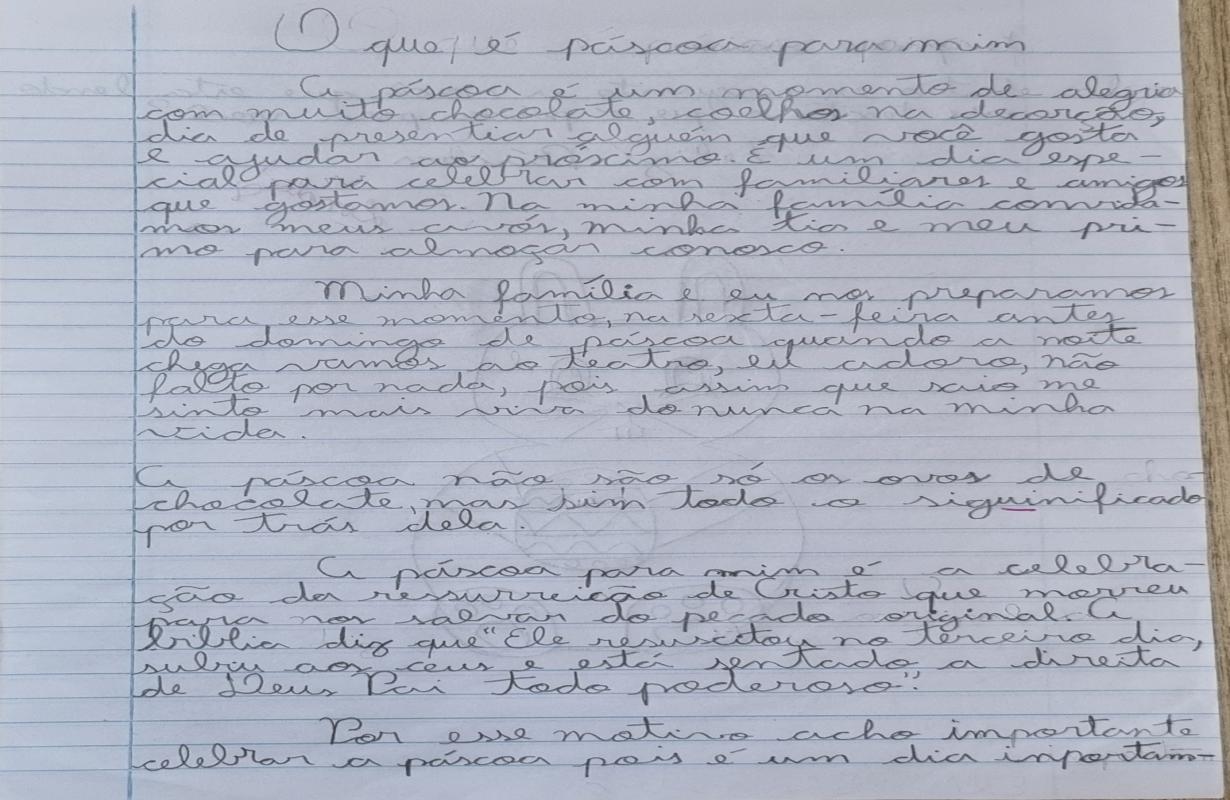 O que é páscoa para mim
A páscoa é um momento de alegria
com muito chocolate, coelhos na decorção,
dia de presentiar alguén que você gosta
e ajudar ao próximo. E um dia espe-
cial para celebrar com familiares e amigos
que gostamos. Na minha família convida-
mos meus avós, minha tia e meu pri-
mo para almoçar conosco.
Minha família e eu nos preparamos
para esse momento, na sexta-feira antes
do domingo de páscoa quando a noite
chega vamos ao teatro, eu adoro, não
falto por nada, pois assim que saio me
sinto mais viva do nunca na minha
vida.
A páscoa não são só os ovos de
chocolate, mas sim todo o siguinificado
por trás dela.
A páscoa para mim é a celebra-
ção da ressurreição de Cristo que morreu
para nos salvar do pecado original. A
bíblia diz que "Ele resuscitou no terceiro dia,
subiu aos céus e está sentado a direita
de Deus Pai todo poderoso".
Por esse motivo acho importante
celebrar a páscoa pois é um dia inportam-